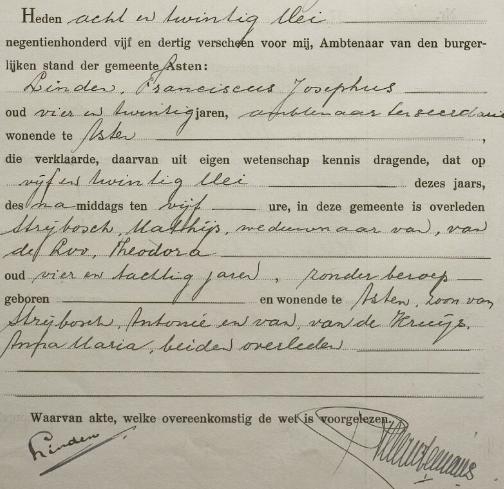 Heden acht en twintig Mei
negentienhonderd vijf en dertig verscheen voor mij, Ambtenaar van den burger-
lijken stand der gemeente Asten:
Linden, Franciscus Josephus
oud vier en twintig jaren, ambtenaar ter secretarie
wonende te Asten,
die verklaarde, daarvan uit eigen wetenschap kennis dragende, dat op
vijf en twintig Mei dezes jaars,
des na middags ten vijf ure, in deze gemeente is overleden
Strijbosch, Mathijs, weduwnaar van, van
de Loo, Theodora
oud vier en tachtig jaren, zonder beroep
geboren en wonende te Asten, zoon van
Strijbosch, Antonie en van, van de Kruijs,
Anna Maria, beiden overleden
Waarvan akte, welke overeenkomstig de wet is voorgelezen.
Linden